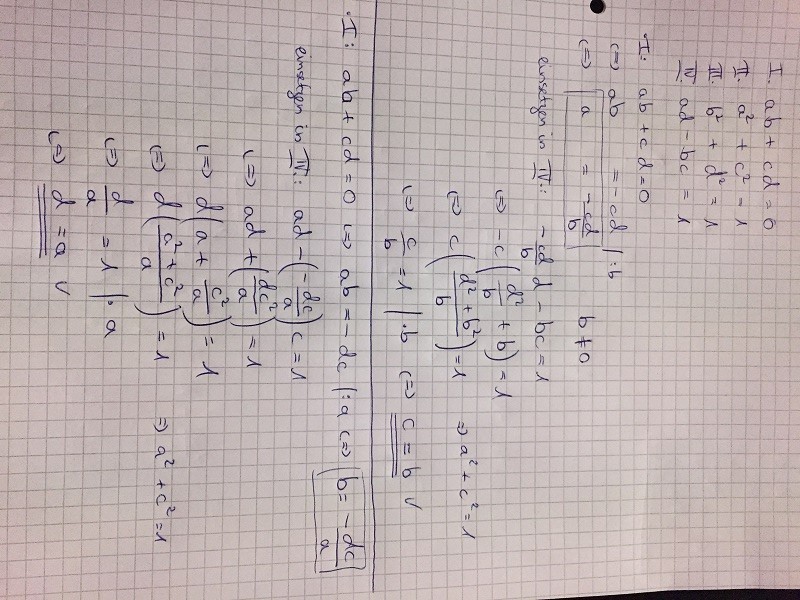 I: ab + cd = 0
II: a² + c² = 1
III: b² + d² = 1
IV: ad - bc = 1
I: ab + cd = 0
(=) ab = -cd | :b b ≠ 0
(=) a = -cd/b
einsetzen in IV: -cd/b d - bc = 1
(=) -c (d²/b + b) = 1
(=) c ((d² + b²)/b) = 1 => a² + c² = 1
(=) c/b = 1 | ·b (=) c = b ✓
I: ab + cd = 0 (=) ab = -dc | :a (=) b = -dc/a
einsetzen in IV: ad - (-dc/a) c = 1
(=) ad + (dc²/a) = 1
(=) d (a + c²/a) = 1
(=) d ((a² + c²)/a) = 1 => a² + c² = 1
(=) d/a = 1 | ·a
(=) d = a ✓